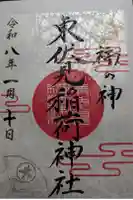 の神
東伏見稲荷神社
令和八年一月十日